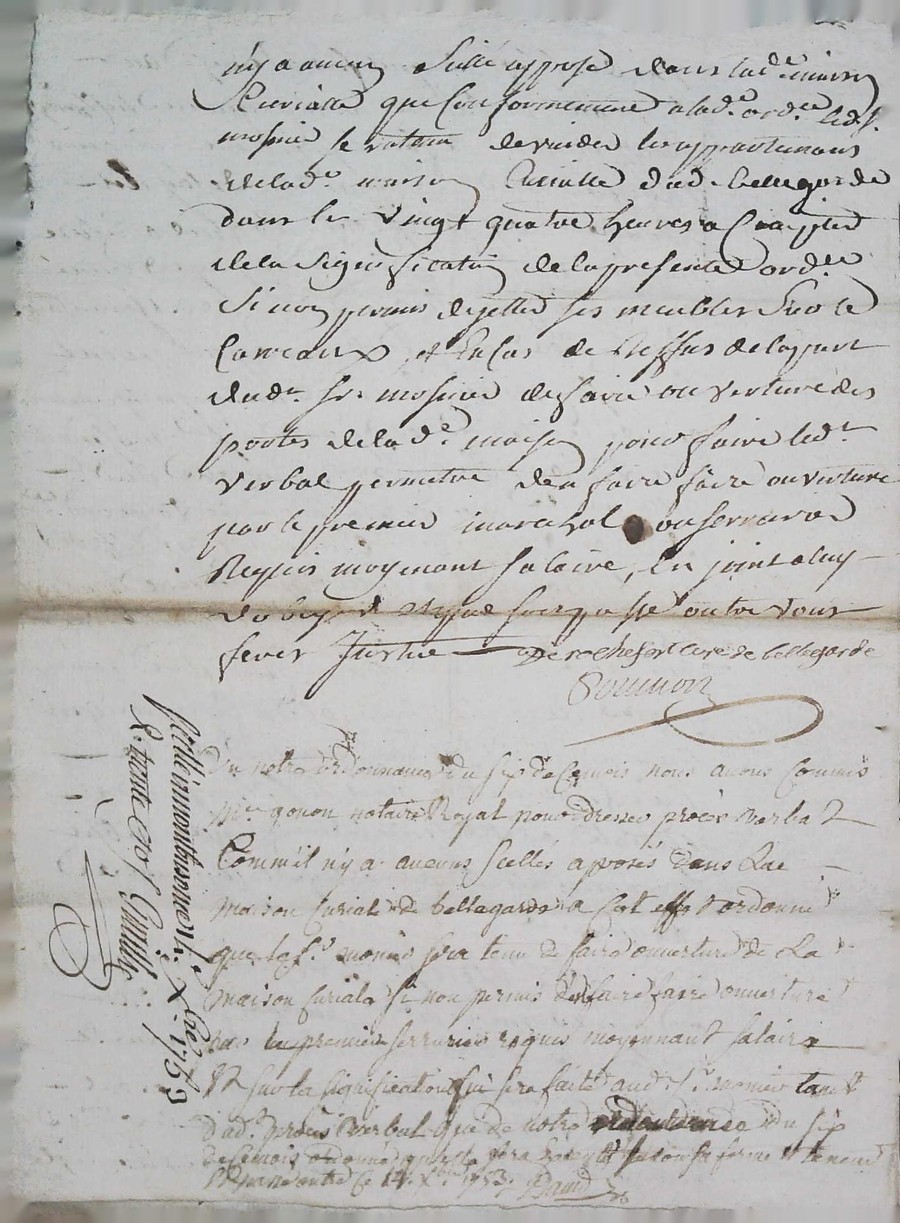 n'y a aucun Scellé apposé dans lad.e maison
Curialle que Conformement a lad.e ord.ce led. s.
mosnié se retire de vuider les appartemens
de lad.e maison Curialle dud. bellegarde
dans le vingt quatre heures a Compter
de la Signification de la presente ord.ce
Si non permis de jetter ses meubles Sur le
Carreaux, et En Cas de Reffus de la part
dud.t Sr. mosnier de faire ouverture des
portes de lad.e maison pour faire led.t
verbal permetre d'en faire faire ouverture
par le premier marechal ou serrurier
Requis moyenant salaire, En joint a luy
d'obeyr et que soit passé outre vous
ferez Justice De rochefort curé de bellegarde
Vu notre ordonnance du six de Ce mois nous avons Commis
M.e gonon notaire Royal pour dresser procès verbal
Comm'il n'y a aucuns scellés apposés dans La
maison Curiale de bellegarde a Cet effet ordonné
que le s.r monier sera tenu de faire ouverture de La
maison Curiale si non permis d'en faire faire ouverture
par le premier serrurier requis moyennant salaire
Et sur la signification qui sera faite aud. s.r monier tant
dud. procès verbal que de notre ordonnance du six
de Ce mois ordonné qu'elle sera Executé selon sa forme et teneur
le 14. Xbre 1753. David
Scellé a montbrison le 14. Xbre 1753
R. trente